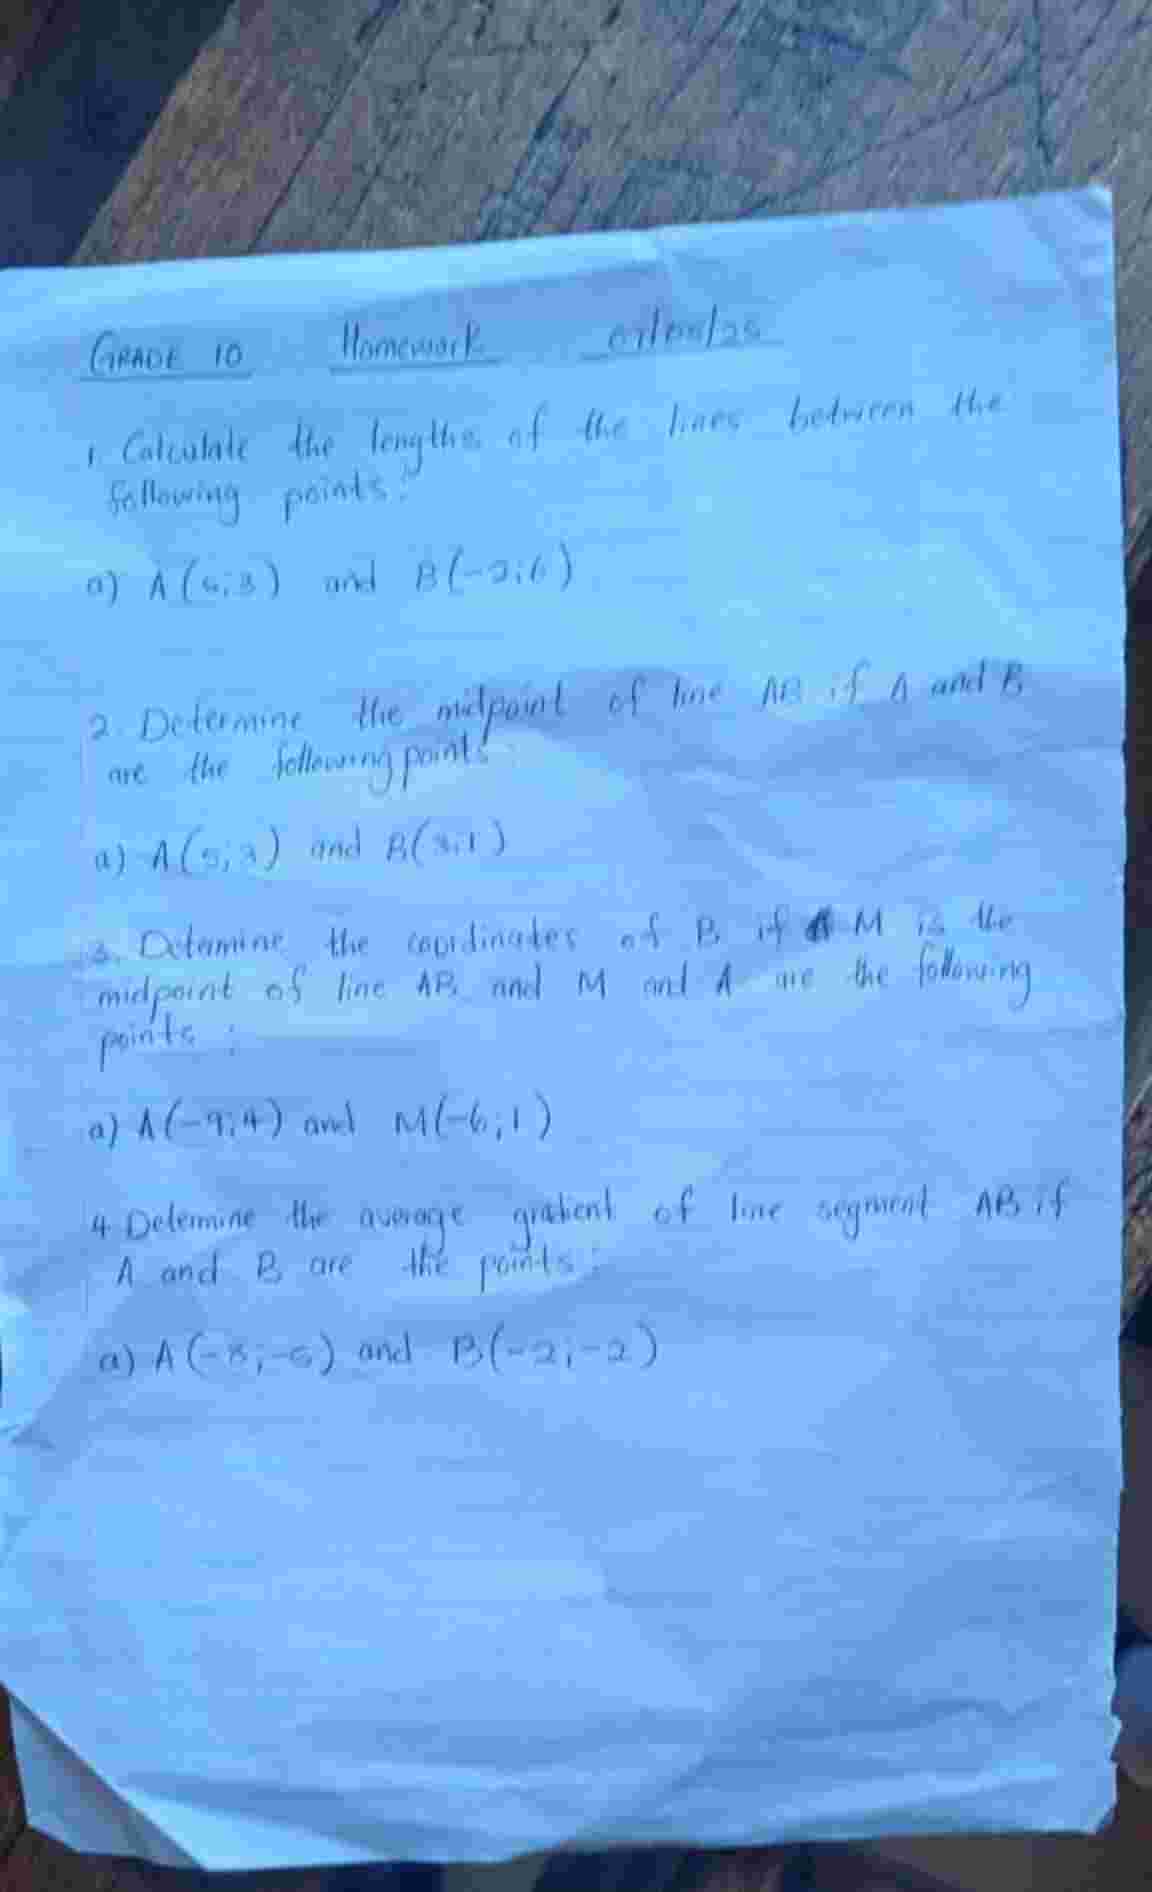 GRADE 10 Homework
1. Calculate the lengths of the lines between the
following points:
a) A(5;3) and B(-2;6)
2. Determine the midpoint of line AB if A and B
are the following points:
a) A(5;3) and B(3;1)
3. Detamine the coordinates of B if M is the
midpoint of line AB and M and A are the following
points :
a) A(-9;4) and M(-6;1)
4 Determine the average gradient of line segment AB if
A and B are the points :
a) A(-8;-5) and B(-2;-2)